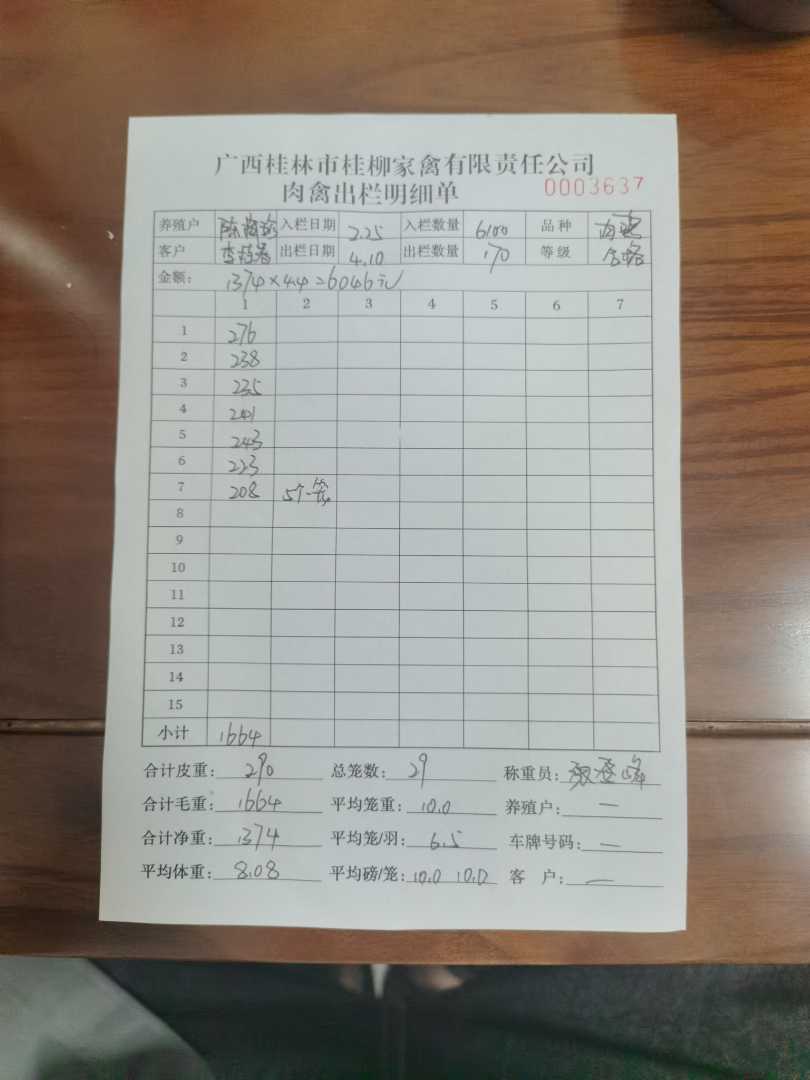 广西桂林市桂柳家禽有限责任公司
肉禽出栏明细单 0003637
养殖户 入栏日期 2.25 入栏数量 6100 品种
客户 出栏日期 4.10 出栏数量 170 等级 合格
金额: 1374×4.4=6046元
1 2 3 4 5 6 7
1 276
2 238
3 235
4 241
5 243
6 223
7 208 5个一笼
8
9
10
11
12
13
14
15
小计 1664
合计皮重: 290 总笼数: 29 称重员:
合计毛重: 1664 平均笼重: 10.0 养殖户: —
合计净重: 1374 平均笼/羽: 6.5 车牌号码: —
平均体重: 8.08 平均磅/笼: 10.0 10.0 客 户: —